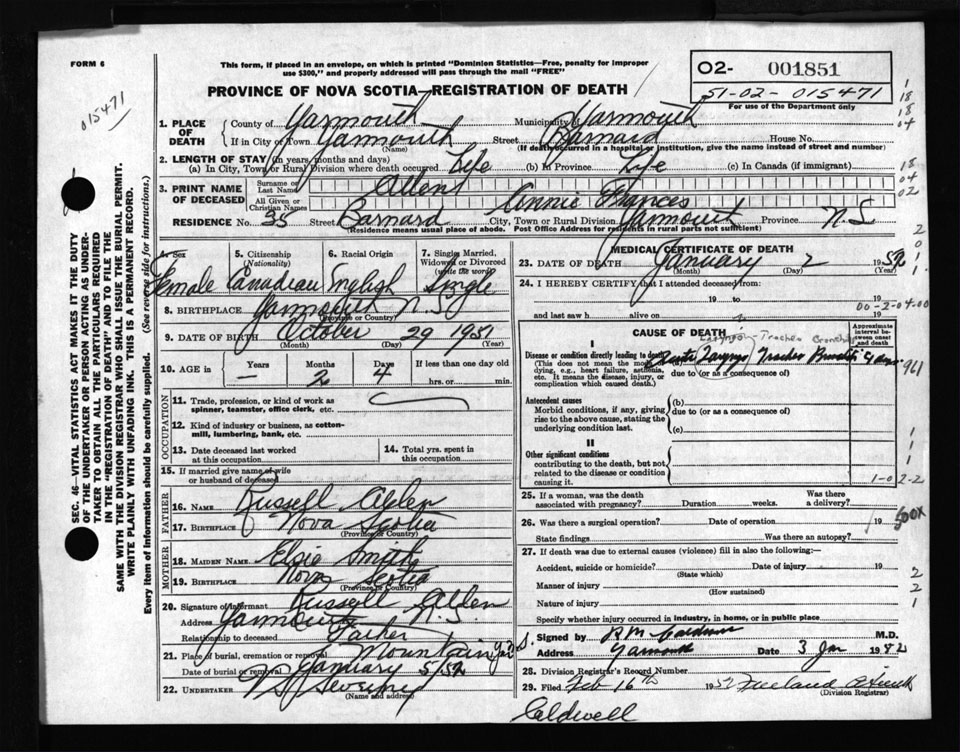 FORM 6
This form, if placed in an envelope, on which is printed "Dominion Statistics—Free, penalty for improper
use $300," and properly addressed will pass through the mail "FREE"
02- 001851
51-02-015471
For use of the Department only
015471
PROVINCE OF NOVA SCOTIA—REGISTRATION OF DEATH
1. PLACE OF DEATH County of Yarmouth Municipality of Yarmouth
If in City or Town Yarmouth Street Barnard House No.
(Name) (If death occurred in a hospital or institution, give the name instead of street and number)
2. LENGTH OF STAY (in years, months and days)
(a) In City, Town or Rural Division where death occurred Life (b) In Province Life (c) In Canada (if immigrant)
3. PRINT NAME OF DECEASED
Surname or Last Name Allen
All Given or Christian Names Annie Frances
RESIDENCE No. 35 Street Barnard City, Town or Rural Division Yarmouth Province N.S.
(Residence means usual place of abode. Post Office Address for residents in rural parts not sufficient)
4. Sex 5. Citizenship (Nationality) 6. Racial Origin 7. Single, Married, Widowed or Divorced (write the word)
Female Canadian English Single
8. BIRTHPLACE Yarmouth N.S.
(Province or Country)
9. DATE OF BIRTH October 29 1951
(Month) (Day) (Year)
10. AGE in Years Months Days If less than one day
— 2 4 hrs. or min.
OCCUPATION
11. Trade, profession, or kind of work as
spinner, teamster, office clerk, etc.
12. Kind of industry or business, as cotton-
mill, lumbering, bank, etc.
13. Date deceased last worked
at this occupation
14. Total yrs. spent in
this occupation
15. If married give name of wife
or husband of deceased
FATHER
16. Name Russell Allen
17. Birthplace Nova Scotia
(Province or Country)
MOTHER
18. MAIDEN NAME Elsie Smith
19. BIRTHPLACE Nova Scotia
(Province or Country)
20. Signature of informant Russell Allen
Address Yarmouth N.S.
Relationship to deceased Father
21. Place of burial, cremation or removal Mountain
Date of burial or removal January 5/52
22. UNDERTAKER
(Name and address)
MEDICAL CERTIFICATE OF DEATH
23. DATE OF DEATH January 2 1952
(Month) (Day) (Year)
24. I HEREBY CERTIFY, that I attended deceased from:
19 to 19
and last saw h alive on 19
00-2-04-00
CAUSE OF DEATH
Approximate interval between onset and death
I
Disease or condition directly leading to death
(This does not mean the mode of
dying, e.g., heart failure, asthenia,
etc. It means the disease, injury, or
complication which caused death.)
(a) Acute Laryngo Tracheo
due to (or as a consequence of)
Antecedent causes
Morbid conditions, if any, giving
rise to the above cause, stating the
underlying condition last.
(b)
due to (or as a consequence of)
(c)
II
Other significant conditions
contributing to the death, but not
related to the disease or condition
causing it.
1-02-2
25. If a woman, was the death
associated with pregnancy? Duration weeks. Was there a delivery?
26. Was there a surgical operation? Date of operation 19
State findings Was there an autopsy?
500X
27. If death was due to external causes (violence) fill in also the following:—
Accident, suicide or homicide? Date of injury 19
(State which)
Manner of injury
(How sustained)
Nature of injury
Specify whether injury occurred in industry, in home, or in public place
Signed by R M Caldwell M.D.
Address Yarmouth Date 3 Jan 1952
28. Division Registrar's Record Number
29. Filed Feb 16th 1952
(Division Registrar)
Caldwell
SEC. 46—VITAL STATISTICS ACT MAKES IT THE DUTY
OF THE UNDERTAKER OR PERSON ACTING AS UNDER-
TAKER TO OBTAIN ALL THE PARTICULARS REQUIRED
IN THE "REGISTRATION OF DEATH" AND TO FILE THE
SAME WITH THE DIVISION REGISTRAR WHO SHALL ISSUE THE BURIAL PERMIT.
WRITE PLAINLY WITH UNFADING INK. THIS IS A PERMANENT RECORD.
Every item of information should be carefully supplied. (See reverse side for instructions.)